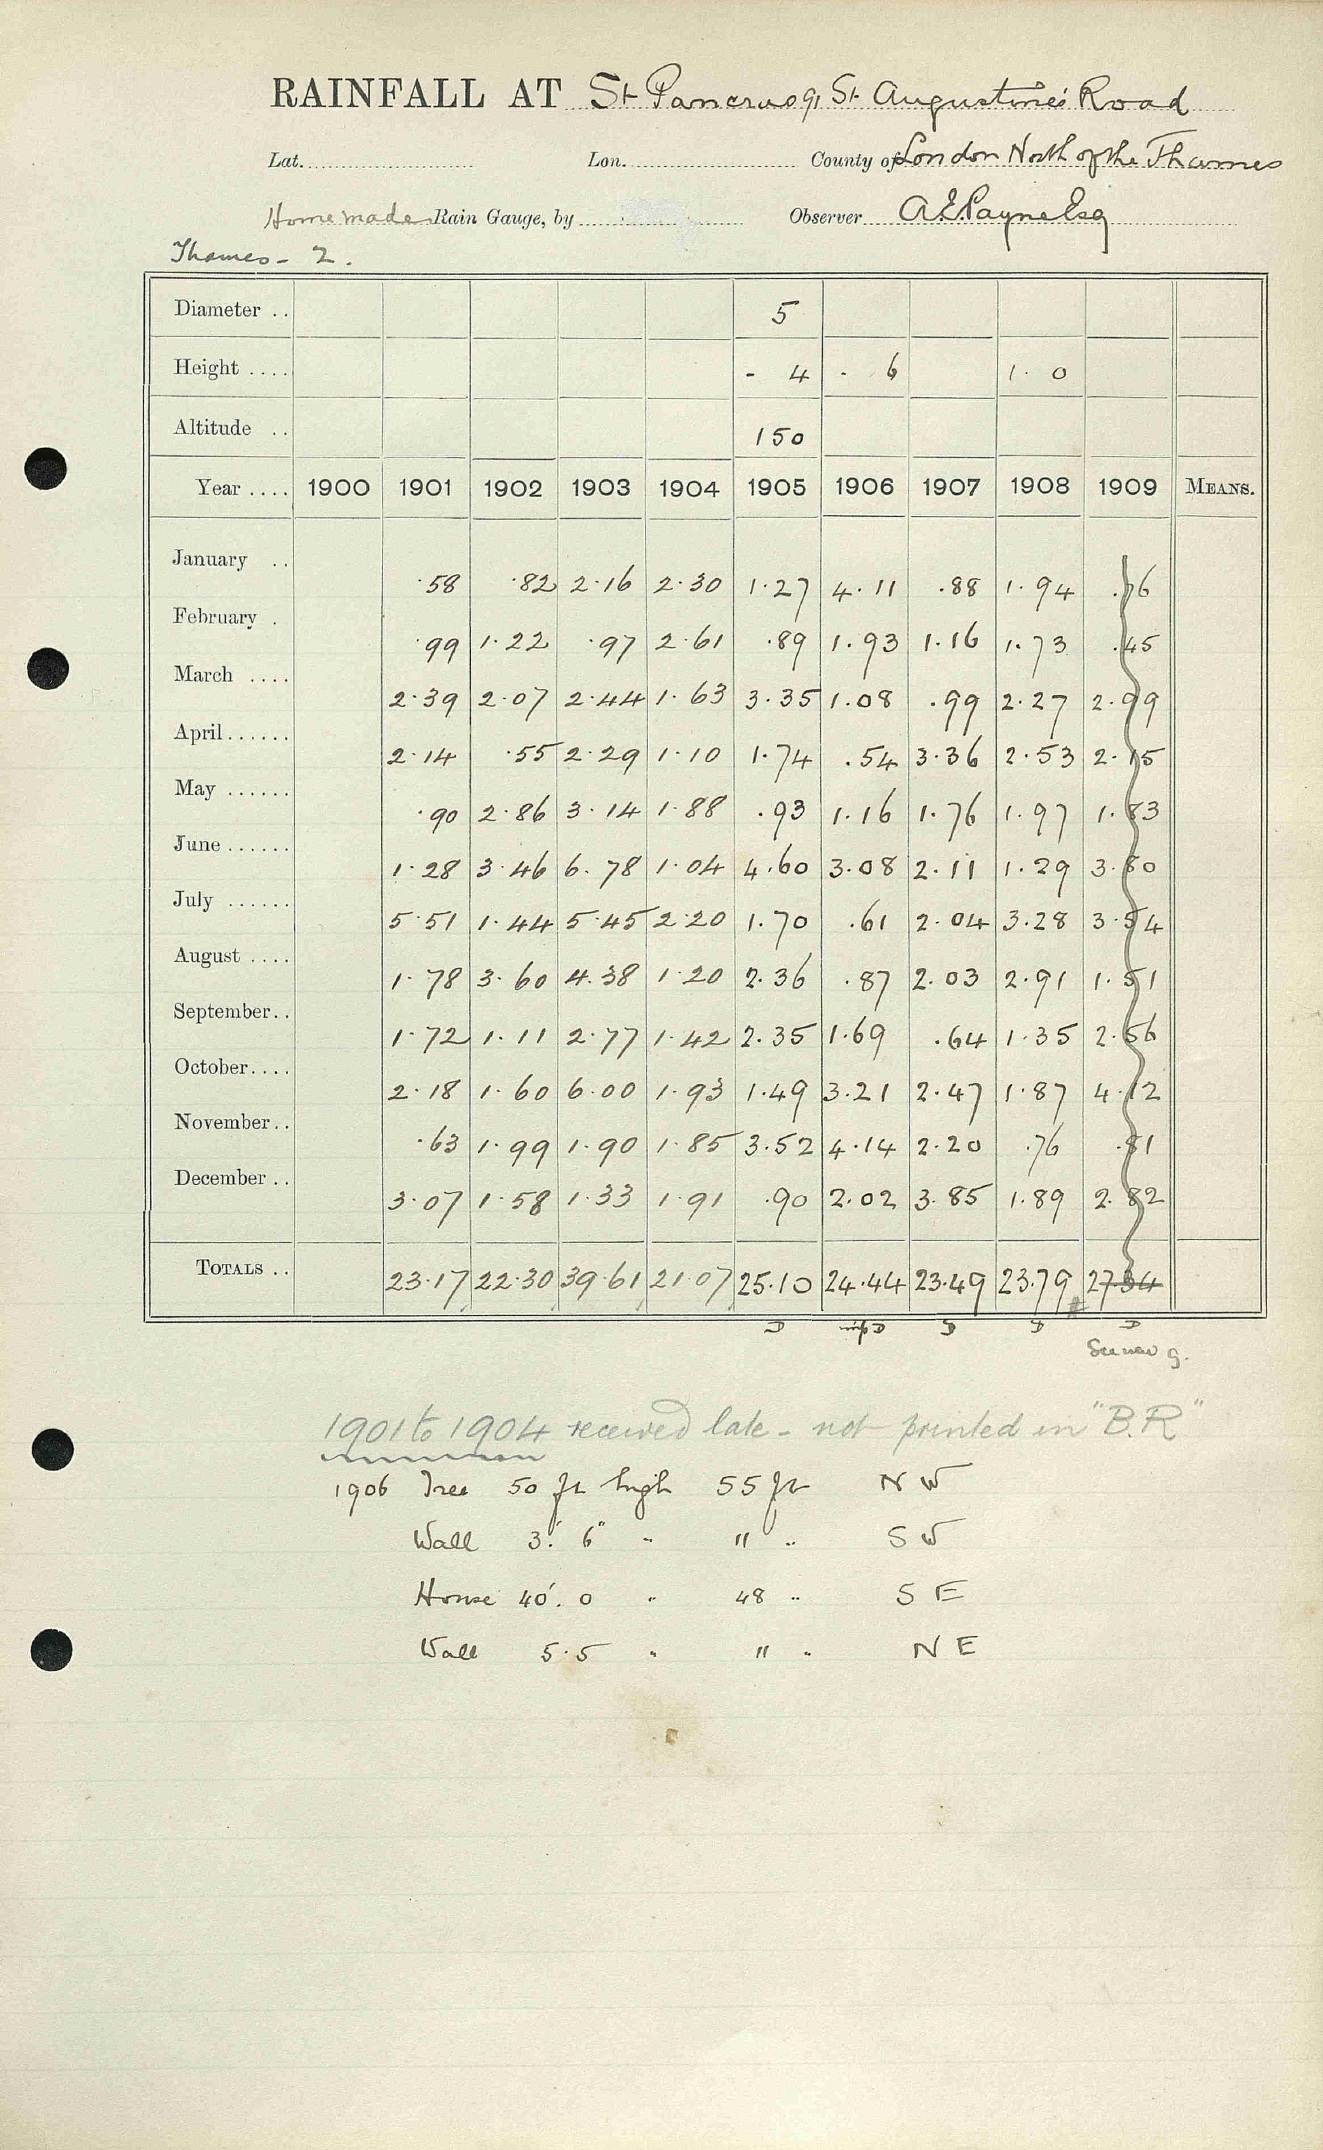 RAINFALL AT St Pancras 91 St. Augustine's Road
Lat. Lon. County of London North of the Thames
Home made Rain Gauge, by Observer A.E. Payne Esq
Thames - 2.
Diameter .. 5
Height .... - 4 - 6 1. 0
Altitude .. 150
Year .... 1900 1901 1902 1903 1904 1905 1906 1907 1908 1909 MEANS.
January .. .58 .82 2.16 2.30 1.27 4.11 .88 1.94 .76
February . .99 1.22 .97 2.61 .89 1.93 1.16 1.73 .45
March .... 2.39 2.07 2.44 1.63 3.35 1.08 .99 2.27 2.99
April...... 2.14 .55 2.29 1.10 1.74 .54 3.36 2.53 2.15
May ...... .90 2.86 3.14 1.88 .93 1.16 1.76 1.97 1.83
June ...... 1.28 3.46 6.78 1.04 4.60 3.08 2.11 1.29 3.80
July ...... 5.51 1.44 5.45 2.20 1.70 .61 2.04 3.28 3.54
August .... 1.78 3.60 4.38 1.20 2.36 .87 2.03 2.91 1.51
September.. 1.72 1.11 2.77 1.42 2.35 1.69 .64 1.35 2.56
October.... 2.18 1.60 6.00 1.93 1.49 3.21 2.47 1.87 4.12
November.. .63 1.99 1.90 1.85 3.52 4.14 2.20 .76 .81
December .. 3.07 1.58 1.33 1.91 .90 2.02 3.85 1.89 2.82
TOTALS .. 23.17 22.30 39.61 21.07 25.10 24.44 23.49 23.79 27.34
D D D D D
See new g.
1901 to 1904 received late - not printed in "B.R"
1906 Tree 50 ft high 55 ft NW
Wall 3' 6" " 11 " SW
House 40'. 0 " 48 " SE
Wall 5.5 " 11 " NE